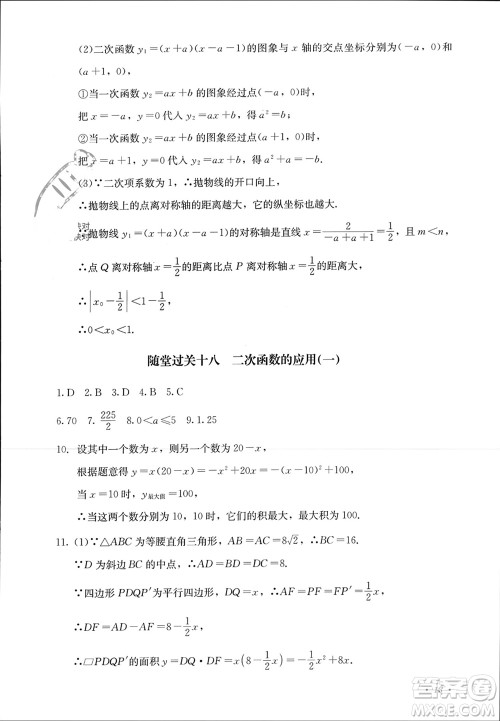 (2)二次函数 y₁=(x+a)(x-a-1)的图象与 x 轴的交点坐标分别为(-a,0)和
(a+1,0),
①当一次函数 y₂=ax+b 的图象经过点(-a,0)时,
把 x=-a,y=0 代入 y₂=ax+b 得,a²=b;
②当一次函数 y₂=ax+b 的图象经过点(a+1,0)时,
把 x=a+1,y=0 代入 y₂=ax+b 得,a²+a=-b.
(3)∵二次项系数为1,∴抛物线的开口向上,
∴抛物线上的点离对称轴的距离越大,它的纵坐标也越大.
∵抛物线 y₁=(x+a)(x-a-1)的对称轴是直线 x=2/(-a+a+1),且 m<n,
∴点 Q 离对称轴 x=1/2的距离比点 P 离对称轴 x=1/2的距离大,
∴|x₀-1/2|<1-1/2,
∴0<x₀<1.
随堂过关十八 二次函数的应用(一)
1.D 2.B 3.D 4.B 5.C
6.70 7.225/2 8.0<a≤5 9.1.25
10. 设其中一个数为 x,则另一个数为 20-x,
根据题意得 y=x(20-x)=-x²+20x=-(x-10)²+100,
当 x=10 时,y最大值=100,
∴当这两个数分别为 10,10 时,它们的积最大,最大为 100.
11. (1)∵△ABC 为等腰直角三角形,AB=AC=8√2,∴BC=16.
∵D 为斜边 BC 的中点,∴AD=BD=DC=8.
∵四边形 PDQP′为平行四边形,DQ=x,∴AP=x,AF=PF=FP′=1/2x,
∴DF=AD-AF=8-1/2x,
∴▱PDQP′的面积 y=DQ·DF=x(8-1/2x)=-1/2x²+8x.
答案圈